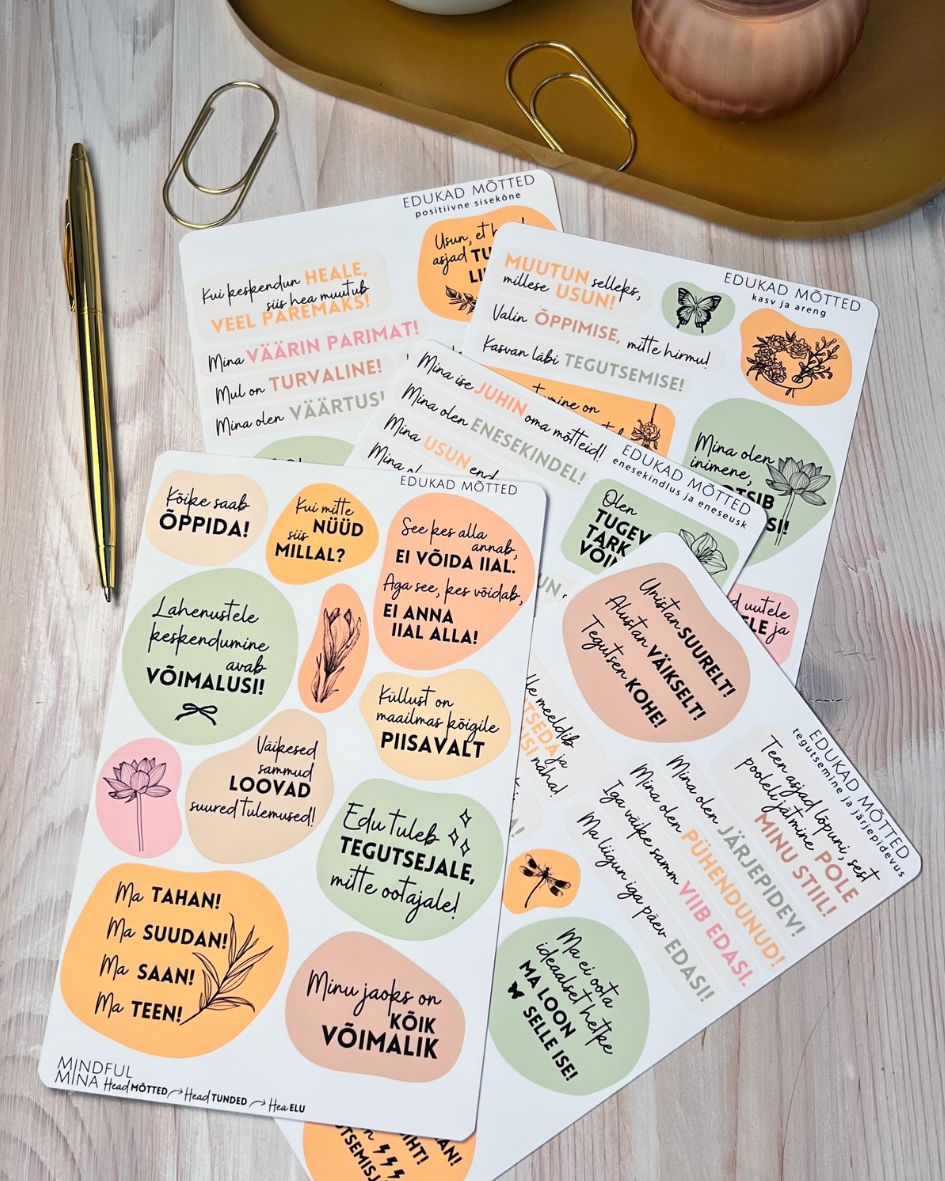 EDUKAD MÕTTED
positiivne sisekõne
Usun, et
asjad
Kui keskendun HEALE,
siis hea muutub
VEEL PAREMAKS!
Mina VÄÄRIN PARIMAT!
Mul on TURVALINE!
Mina olen VÄÄRTUS
EDUKAD MÕTTED
kasv ja areng
MUUTUN selleks,
millesse USUN!
Valin ÕPPIMISE, mitte hirmu!
Kasvan läbi TEGUTSEMISE!
on
Mina olen
inimene,
uutele
ja
EDUKAD MÕTTED
enesekindlus ja eneseusk
Mina ise JUHIN oma mõtteid!
Mina olen ENESEKINDEL!
Mina USUN
Mina
Olen
TUGEV
TARK
EDUKAD MÕTTED
Kõike saab
ÕPPIDA!
Kui mitte
NÜÜD
siis
MILLAL?
See kes alla
annab,
EI VÕIDA IIAL.
Aga see, kes võidab,
EI ANNA
IIAL ALLA!
Lahenustele
keskendumine
avab
VÕIMALUSI!
Küllust on
maailmas kõigile
PIISAVALT
Väikesed
sammud
LOOVAD
suured tulemused!
Edu tuleb
TEGUTSEJALE,
mitte ootajale!
Ma TAHAN!
Ma SUUDAN!
Ma SAAN!
Ma TEEN!
Minu jaoks on
KÕIK
VÕIMALIK
MINDFUL
MINA Head MÕTTED Head TUNDED Hea ELU
EDUKAD MÕTTED
tegutsemine ja järjepidevus
Unistan SUURELT!
Alustan VÄIKSELT!
Tegutsen KOHE!
meeldib
ja
näha!
Teen asjad lõpuni, sest
pooleli jätmine POLE
MINU STIIL!
Mina olen JÄRJEPIDEV!
Mina olen PÜHENDUNUD!
Iga väike samm VIIB EDASI.
Ma liigun iga päev EDASI!
Ma ei oota
ideaalset hetke
MA LOON
SELLE ISE!